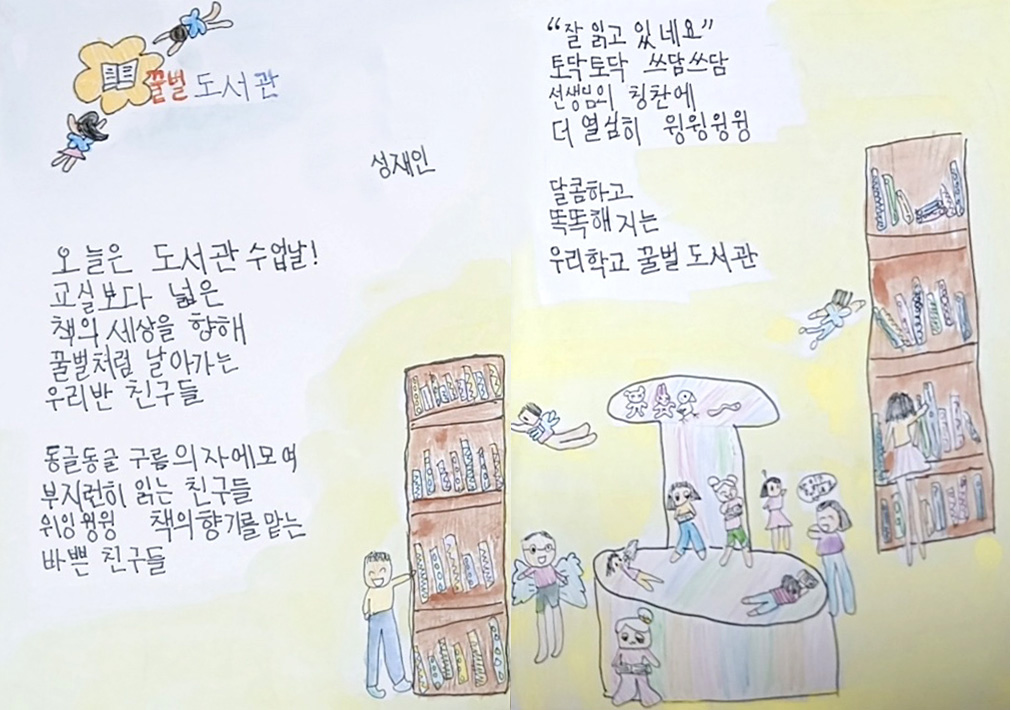 꿀벌 도서관
성재인
오늘은 도서관 수업날!
교실보다 넓은
책의 세상을 향해
꿀벌처럼 날아가는
우리반 친구들
동글동글 구름의자에모여
부지런히 읽는 친구들
위잉윙윙 책의향기를 맡는
바쁜 친구들
“잘 읽고 있네요”
토닥토닥 쓰담쓰담
선생님의 칭찬에
더 열심히 윙윙윙윙
달콤하고
똑똑해지는
우리학교 꿀벌 도서관